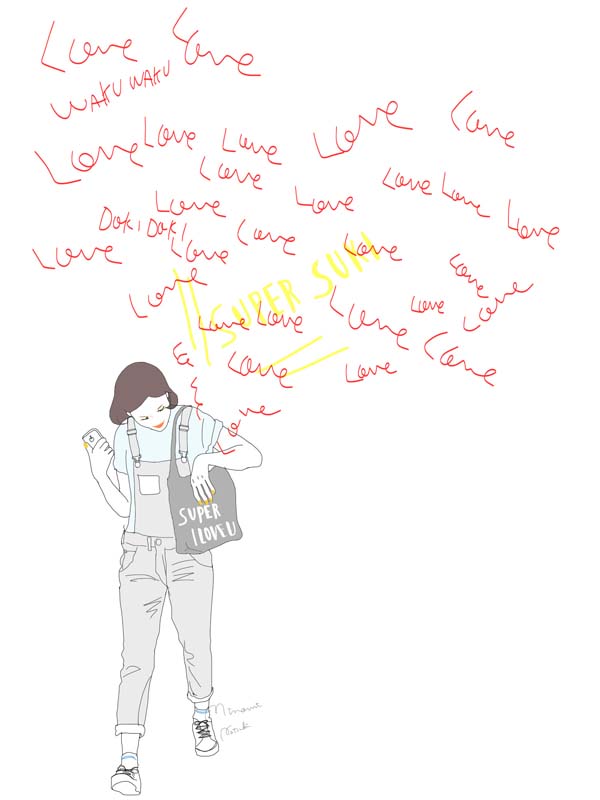 Love Love
WAKU WAKU
Love Love Love Love Love
Love
Love Love Love Love Love
DOKI DOKI Love
Love Love Love Love
SUPER SUKI
Love Love Love
Love Love Love
Love Love Love
Love
SUPER
I LOVE U
Minami